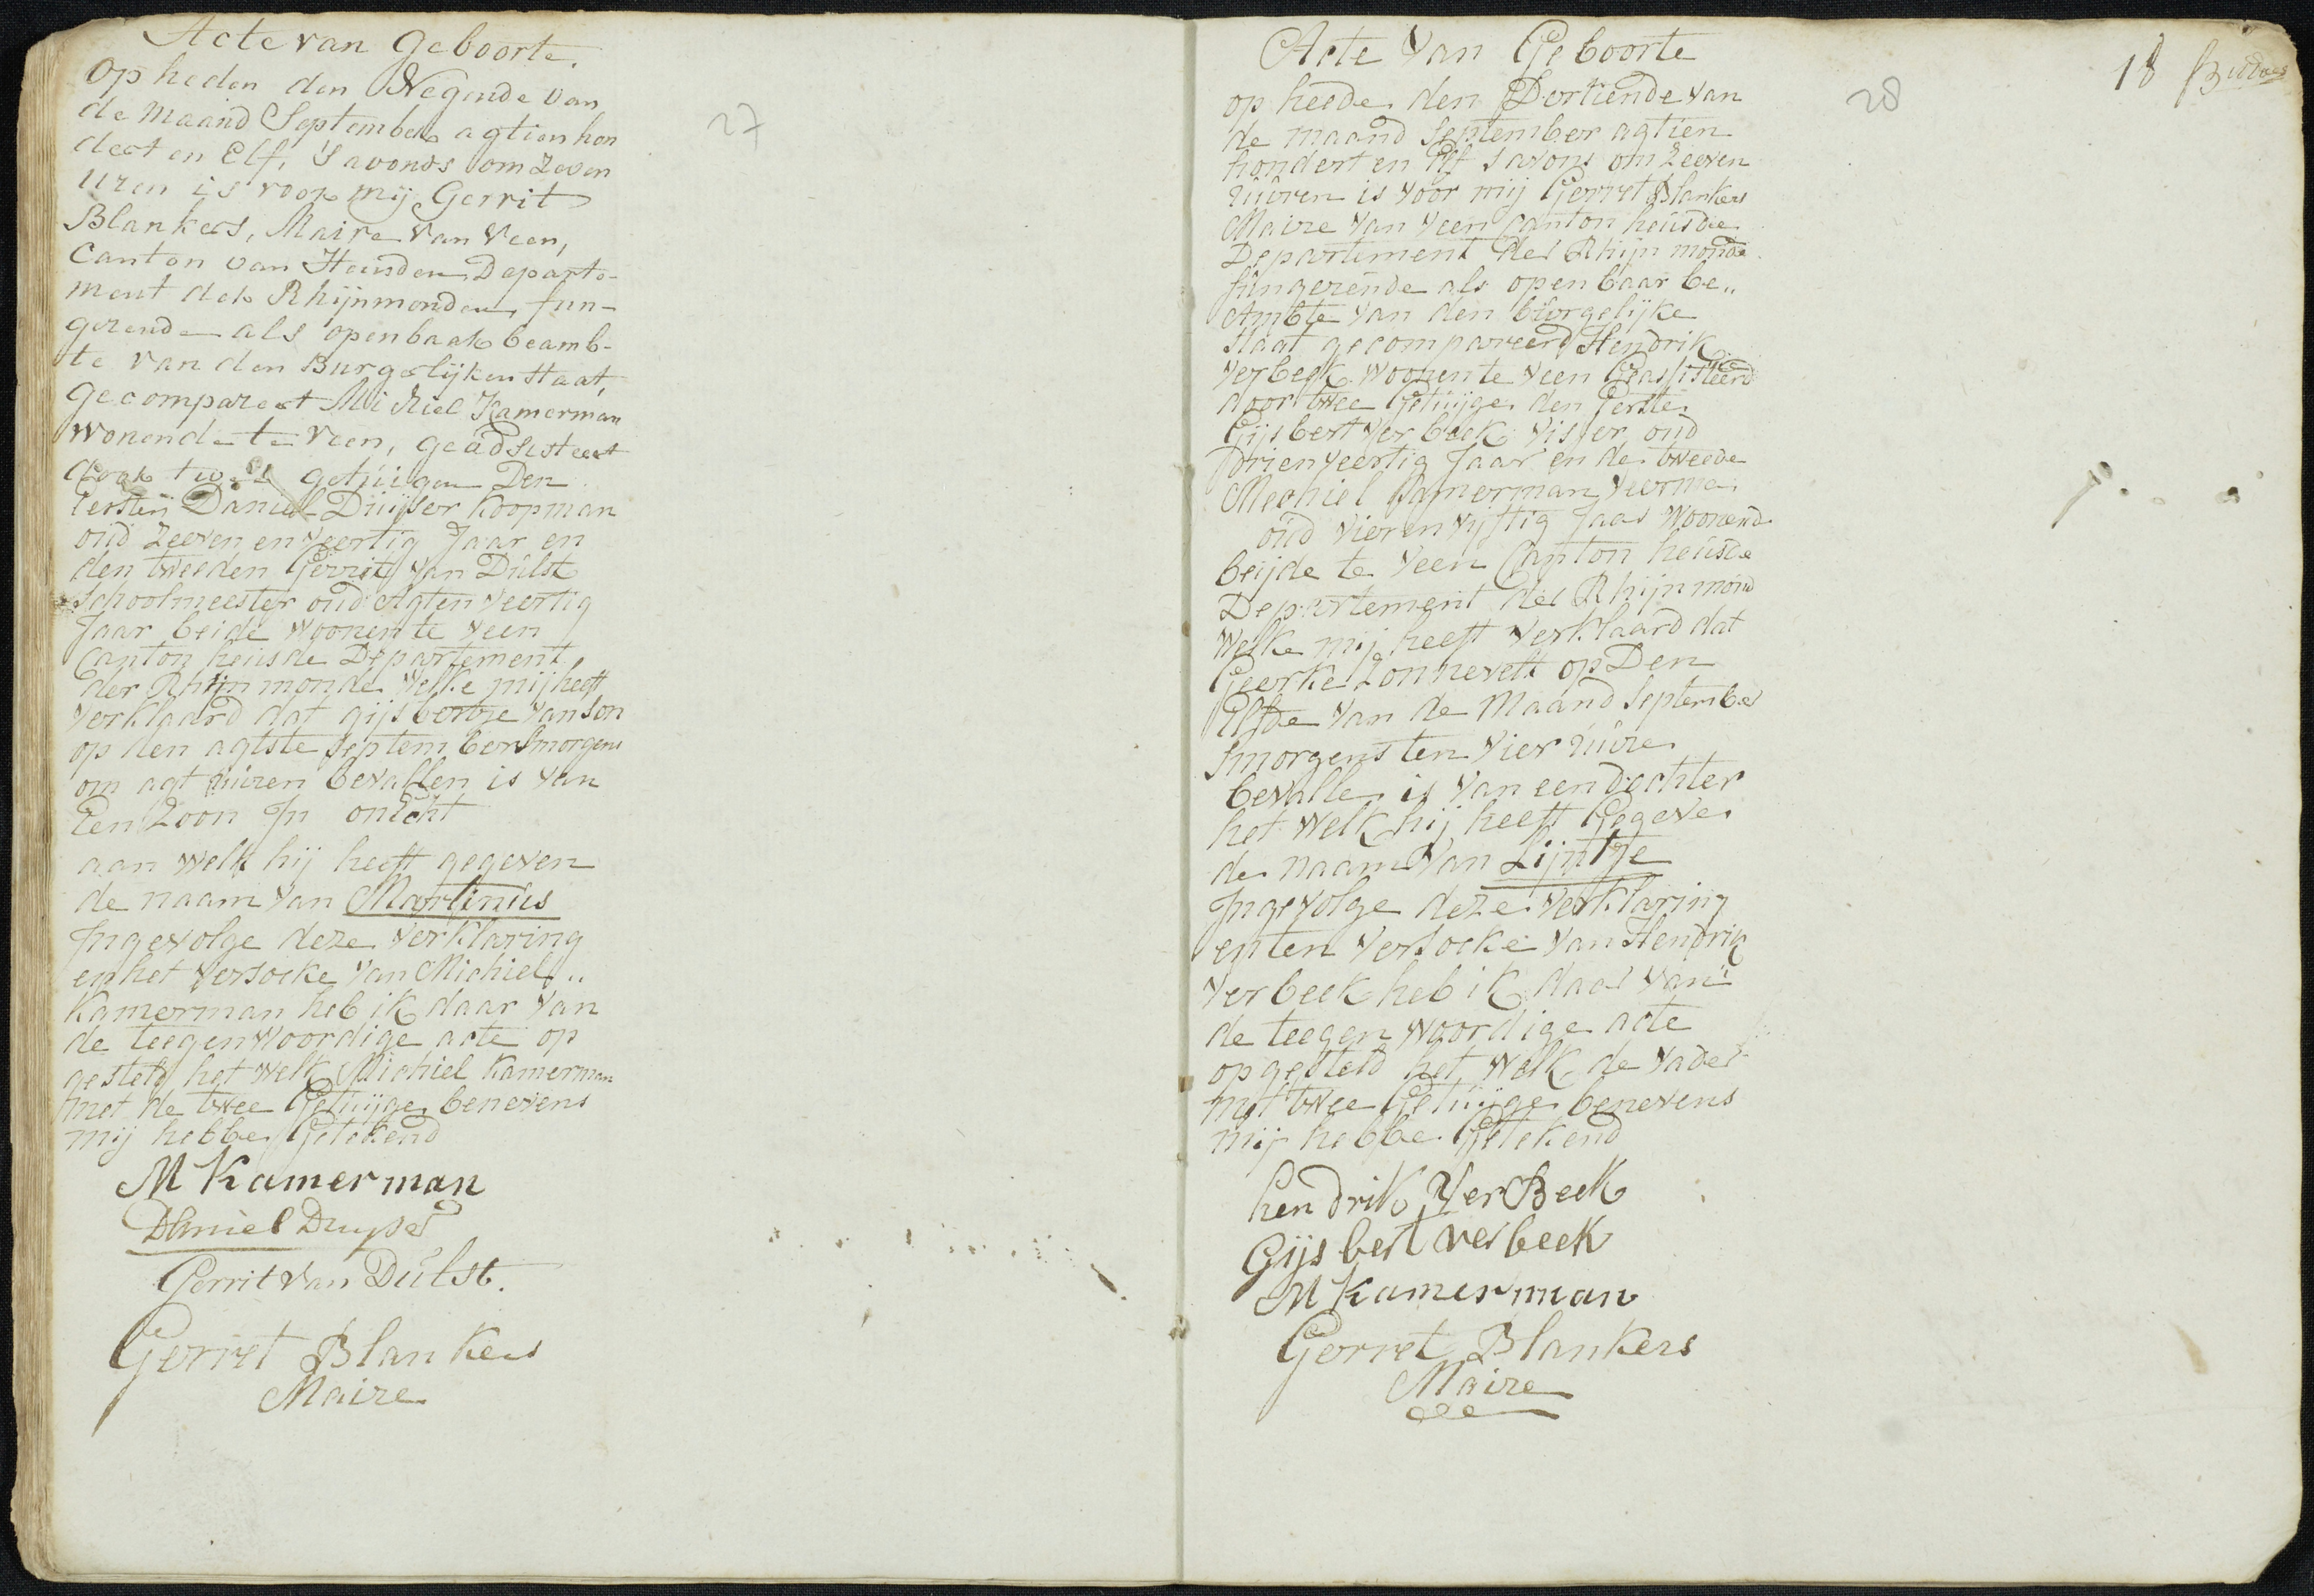 Acte van Geboorte.
Op heden den Negende van
de Maand September agtien hon
dert en Elf, 's avonds om Zeven
uren is voor mij Gerrit
Blankers, Maire van Veen,
Canton van Heusden Departe-
ment der Rhijnmonden, fun-
gerende als openbaar beamb-
te van den Burgerlijken Staat,
gecompareert Michiel Kamerman
wonende te Veen, geadsisteert
door twee getuigen Den
Eersten Daniel Duijser koopman
oud Zeeven en veertig Jaar en
den tweeden Gerrit van Dulst
Schoolmeester oud Agten veertig
Jaar beide Woonen te Veen
Canton heusde Departement
der Rhijnmonde Welke mij heeft
verklaard dat gijsbertje van Son
op den agtste September Smorgens
om agt uuren bevallen is van
Een Zoon In onECht
aan welk hij heeft gegeven
de naam van Martinus
Ingevolge deze verklaring
en het versoeke van Michiel ..
Kamerman heb ik daar van
de teegenwoordige acte op
gesteld het welk Michiel kamerman
met de twee Getuijge benevens
mij hebbe Getekend
M Kamerman
Daniel Duyser
Gerrit van Dulst.
Gerret Blankers
Maire
27
Acte Van Geboorte
op heede den Dertiende van
de maand September agtien
hondert en Elf Savons om Zeeven
uuren is voor mij Gerret Blankers
Maire van Veen Canton heusde
Departement der Rhijn monde
fungerende als openbaar be..
Ambte van den burgelijke
Staat gecompareerd Hendrik
Verbeek Woonen te Veen Geassisteerd
door twee Getuijge den Eerste
Gijsbert Verbeek visser oud
drienveertig Jaar en de tweede
Mechiel Kamerman veerman
oud vierenvyftig Jaar Woonend
beijde te Veen Canton heusde
Departement der Rhijnmond
Welke mij heeft Verklaard dat
Geerke Zonnevelt op Den
Elfde van de Maand September
Smorgens ten Vier uure
bevalle is van een dochter
het Welk hij heeft Gegeve
de naam van Lijntje
Ingevolge deze verklaring
en ten Versoeke van Hendrik
Verbeek heb ik daar van
de teegenwoordige acte
opgesteld het Welk de vader
met twee Getuijge benevens
mij hebbe Getekend
hendrik VerBeek
Gijsbert verbeek
M Kamerman
Gerret Blankers
Maire
28
18